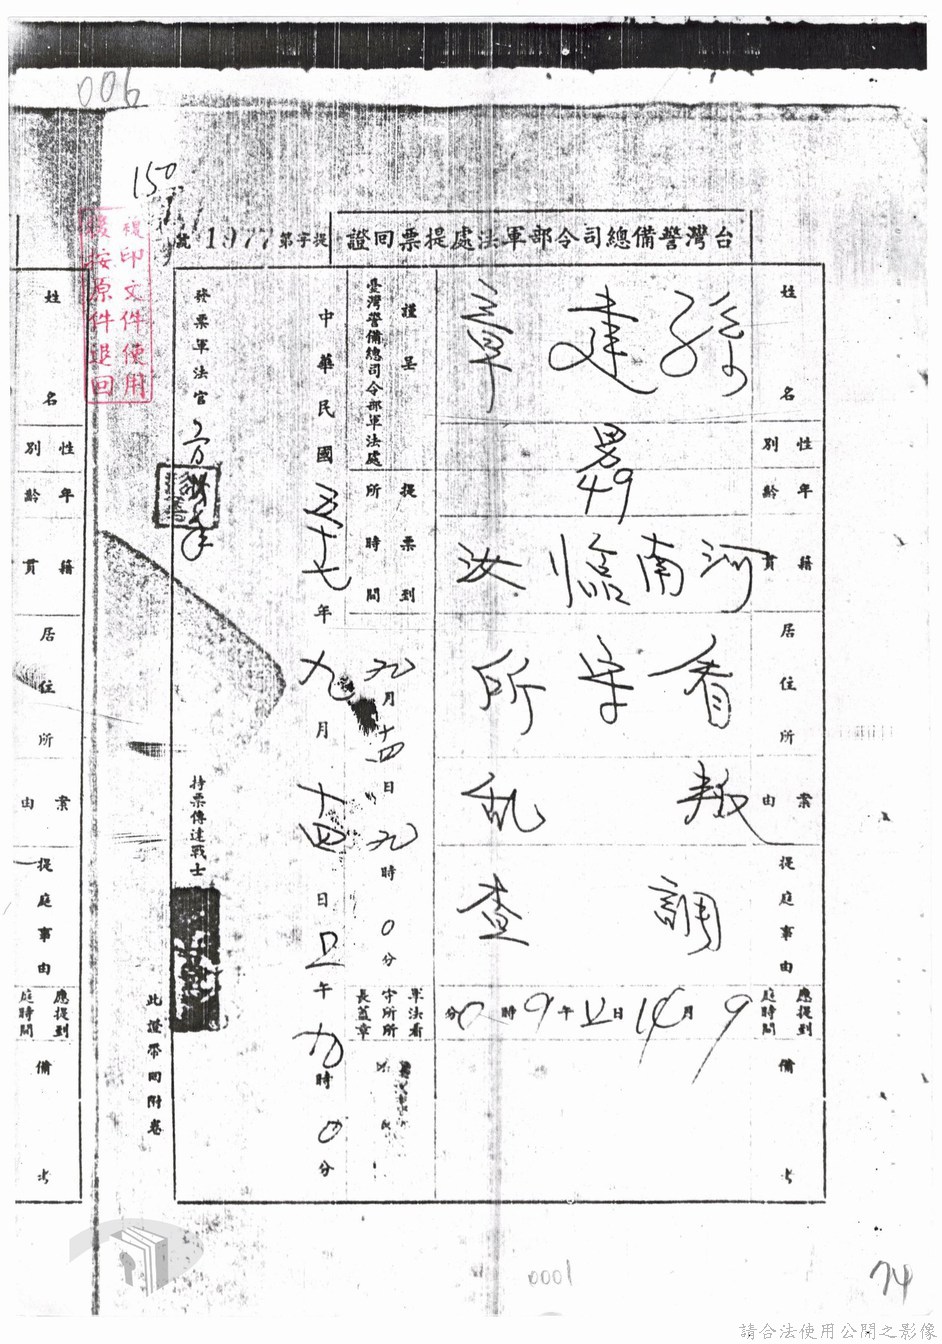 006
150
台灣警備總司令部軍法處提票回證
提字第1977號
姓名
孫建章
性別
男
年齡
49
籍貫
河南臨汝
居住所
看守所
案由
叛乱
提庭事由
調查
應提到庭時間
9月14日上午9時0分
備考
謹呈
臺灣警備總司令部軍法處
提票到所時間
九月十四日九時0分
軍法看守所所長蓋章
中華民國五十七年九月十四日上午九時0分
發票軍法官
持票傳達戰士
此證帶回附卷
複印文件使用
後按原件退回
姓名
性別
年齡
籍貫
居住所
案由
提庭事由
應提到庭時間
備考
0001
74
請合法使用公開之影像